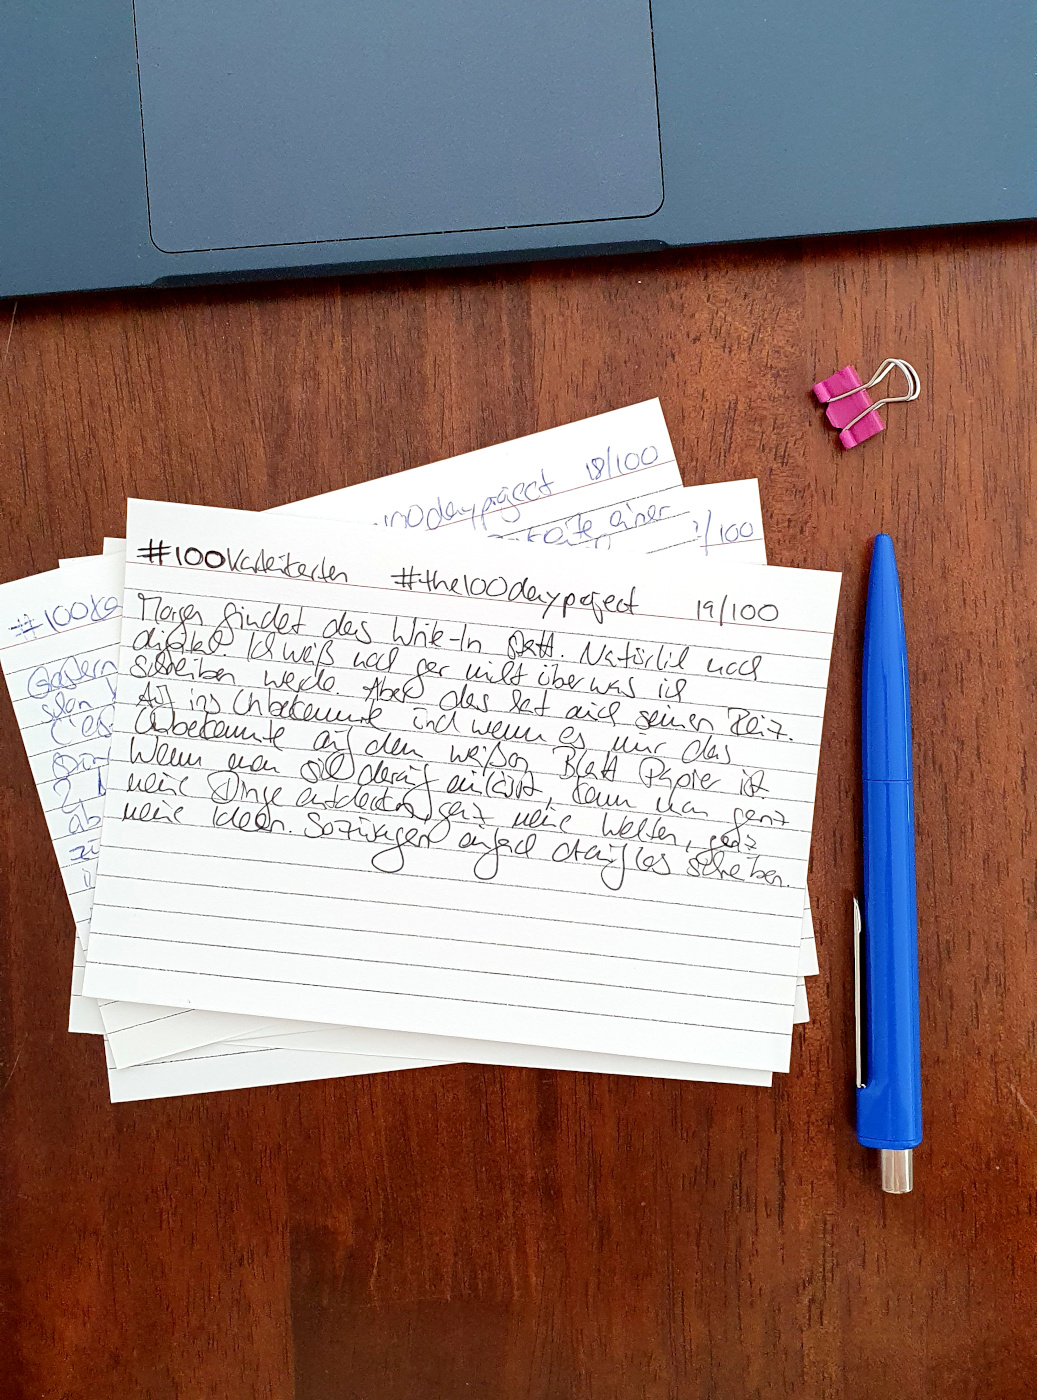 #100Karteikarten #the100dayproject 19/100
Morgen findet das Write-In statt. Natürlich noch
digital. Ich weiß noch gar nicht über was ich
schreiben werde. Aber das hat auch seinen Reiz.
Auf ins Unbekannte und wenn es nur das
Unbekannte auf dem weißen Blatt Papier ist.
Wenn man sich darauf einlässt, kann man ganz
neue Dinge entdecken, ganz neue Welten, ganz
neue Ideen. Sozusagen einfach drauflos schreiben.
100dayproject 18/100
einer
/100
#100Ka
Gestern